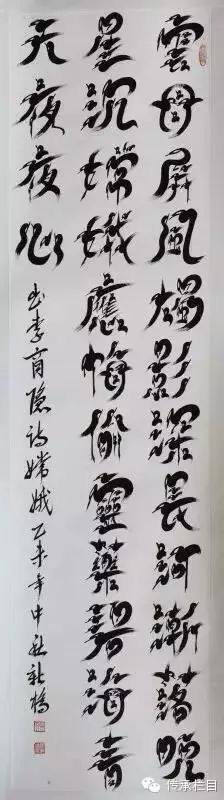 雲母屏風燭影深長河漸落曉
星沉嫦娥應悔偷靈藥碧海青
天夜夜心
书李商隐诗嫦娥乙未年中秋
传承栏目